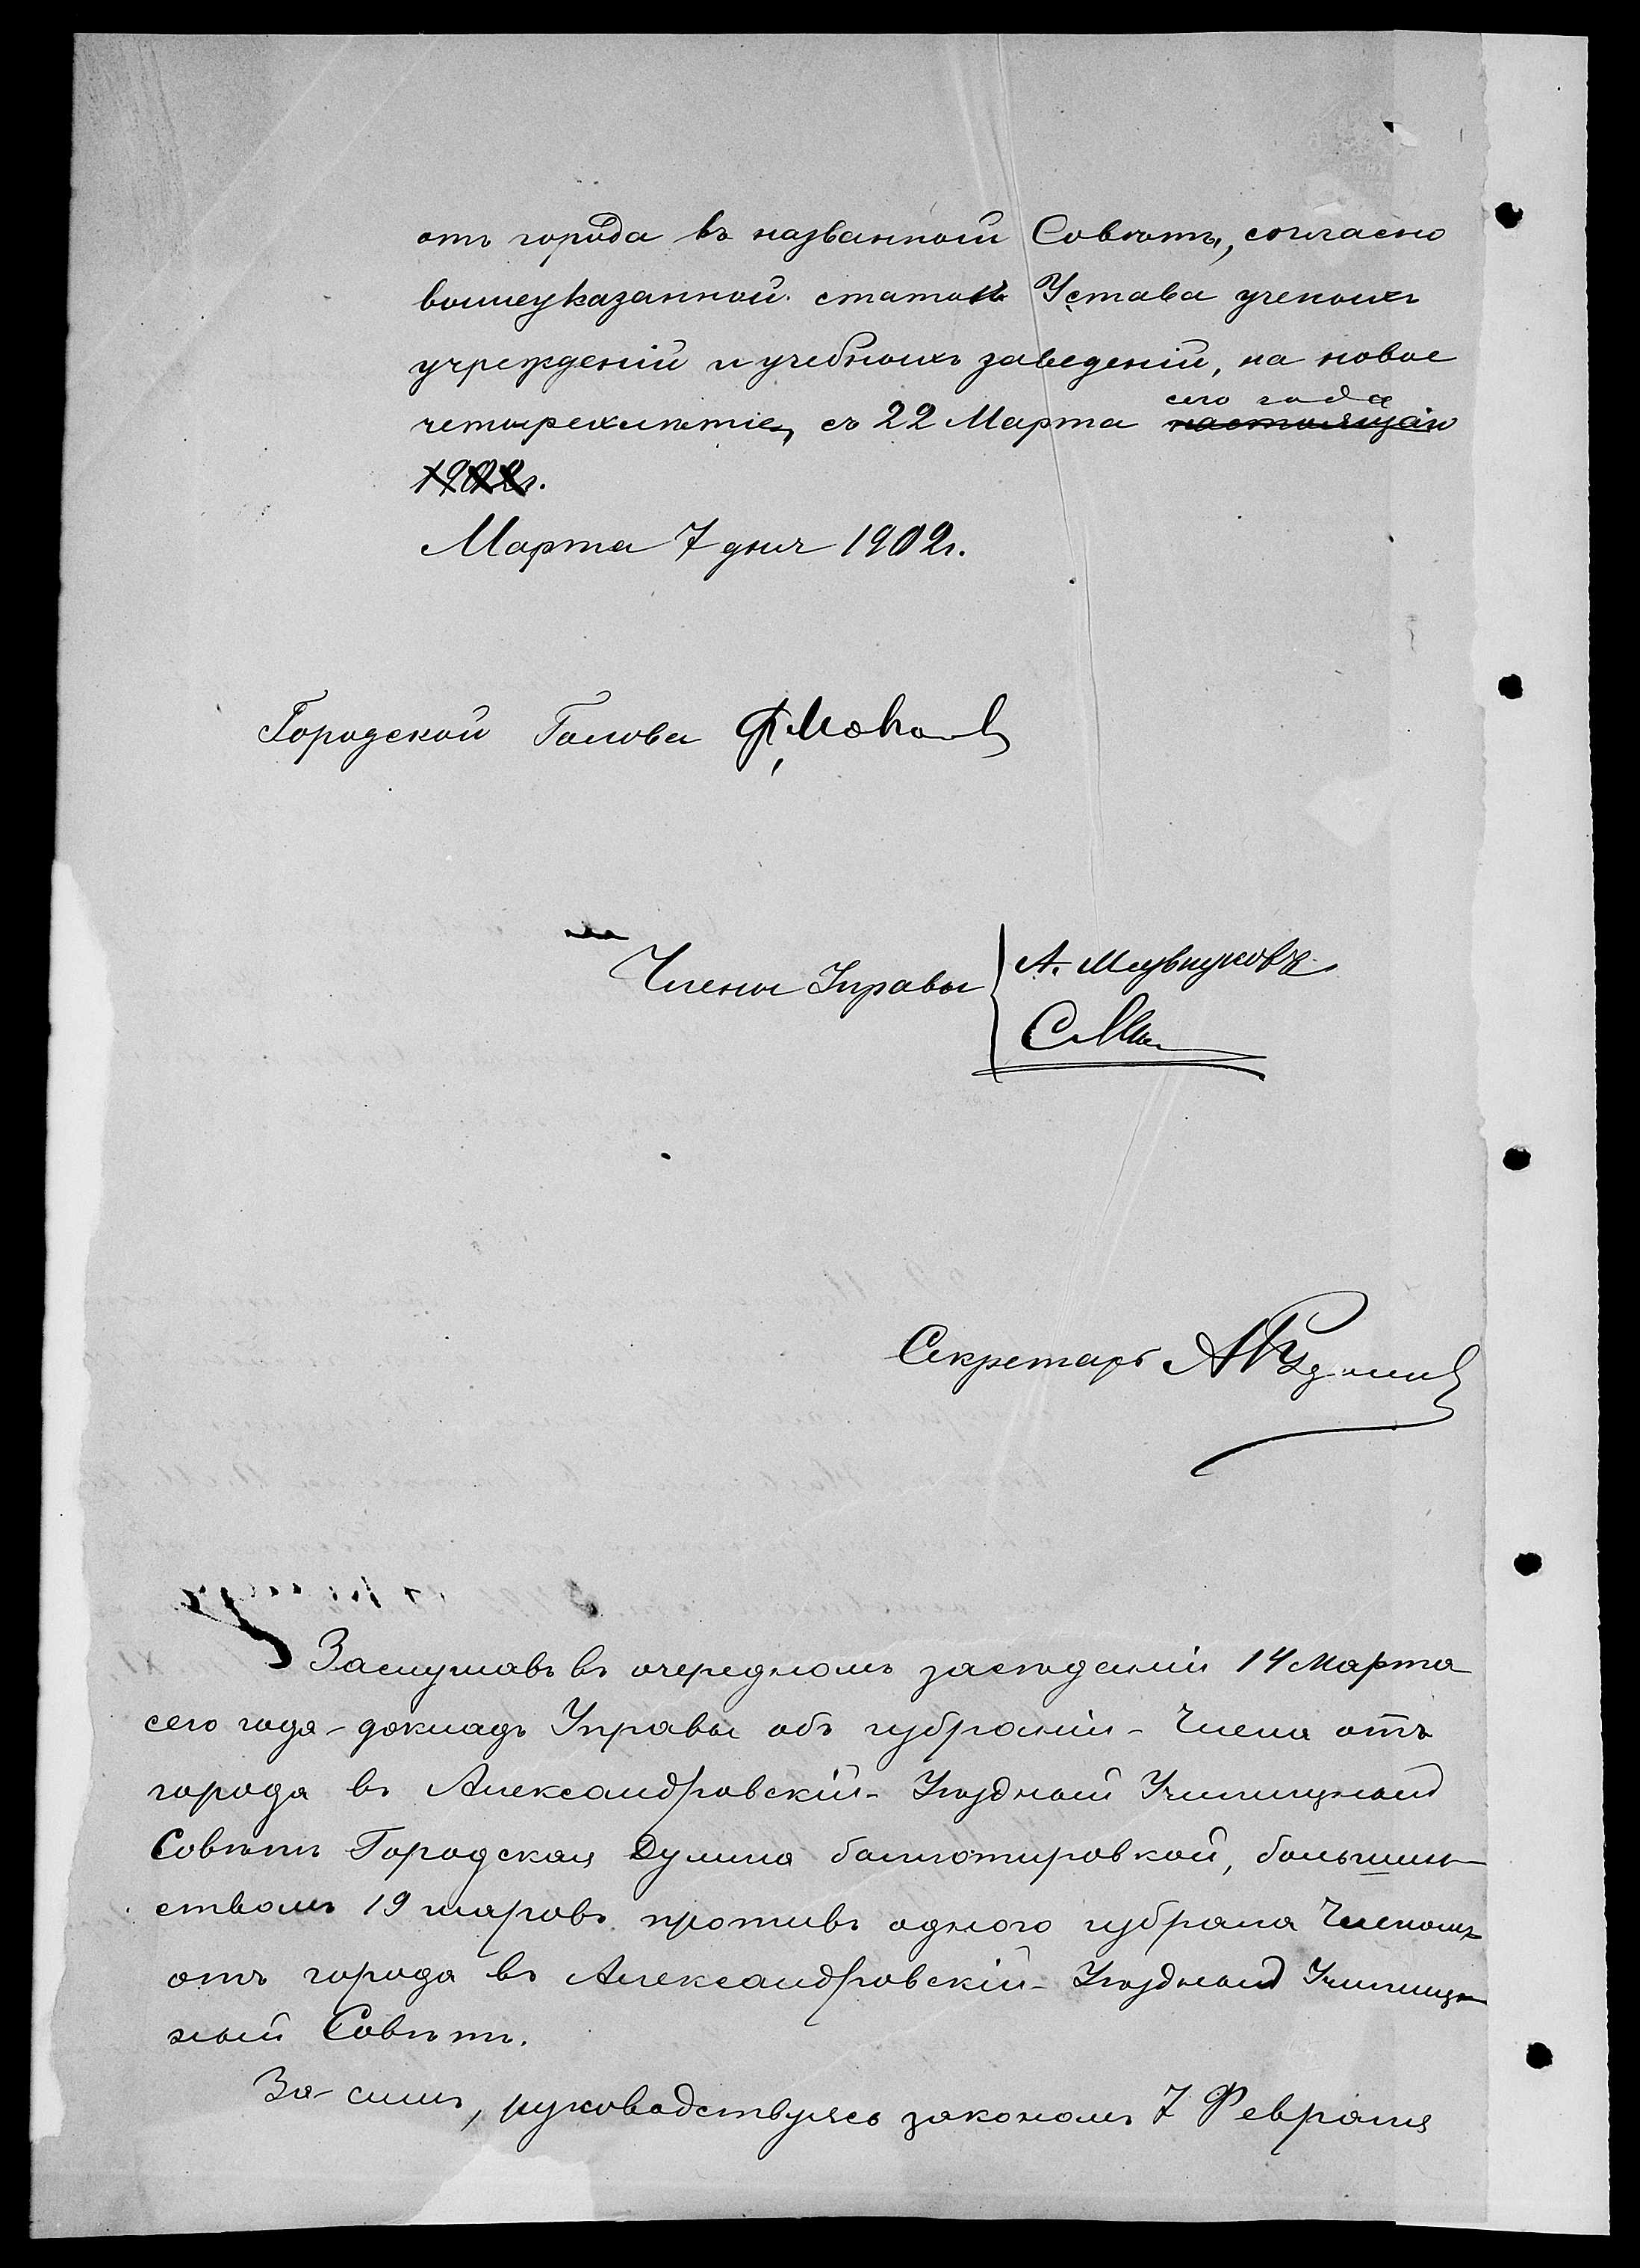 отъ города въ названный Совѣтъ, согласно
вышеуказанной статьѣ Устава ученыхъ
учрежденій и учебныхъ заведеній, на новое
четырехлѣтіе, съ 22 Марта настоящаго
сего года
1902 г.
Марта 7 дня 1902 г.
Городской Голова
Члены Управы
А.
С.
Секретарь
Заслушавъ въ очередномъ засѣданіи 14 Марта
сего года докладъ Управы объ избраніи Члена отъ
города въ Александровскій Уѣздный Училищный
Совѣтъ Городская Дума баллотировкой, большин-
ствомъ 19 шаровъ противъ одного избрала Членомъ
отъ города въ Александровскій Уѣздный Училищ-
ный Совѣтъ.
За симъ, руководствуясь закономъ 7 Февраля